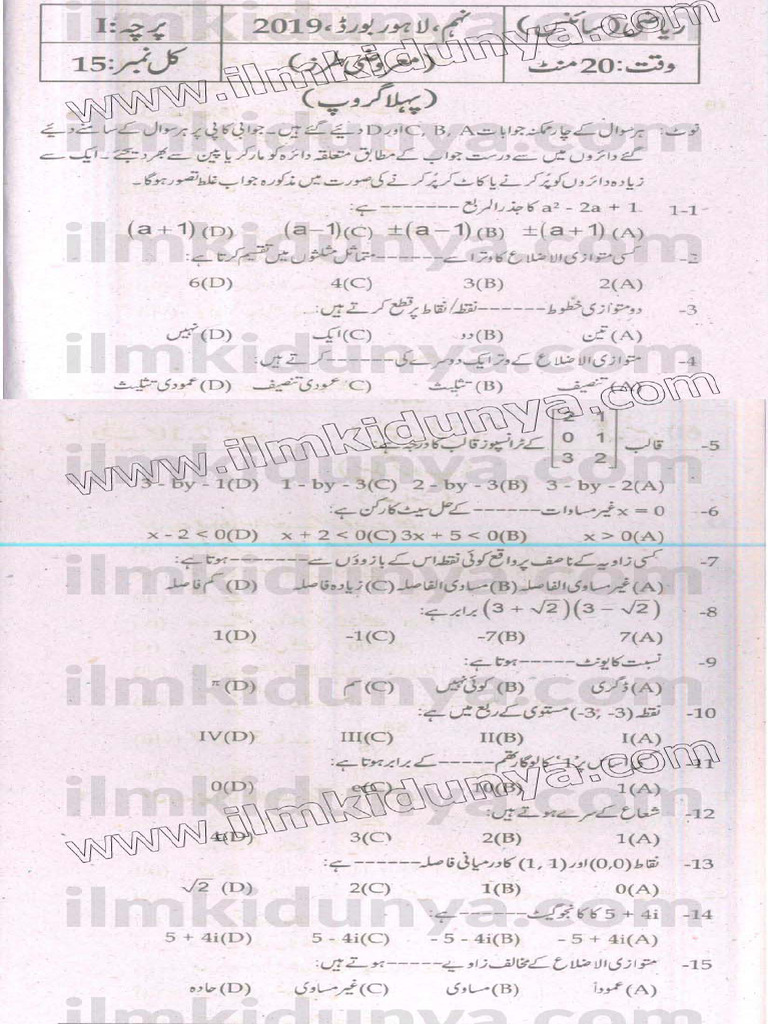 ریاضی (سائنس) نہم، لاہور بورڈ، 2019 پرچہ: I
وقت: 20 منٹ (معروضی طرز) کل نمبر: 15
(پہلا گروپ)
نوٹ: ہر سوال کے چار ممکنہ جوابات C, B, A اور D دیئے گئے ہیں۔ جوابی کاپی پر ہر سوال کے سامنے دیئے
گئے دائروں میں سے درست جواب کے مطابق متعلقہ دائرہ کو مارکر یا پین سے بھر دیجئے۔ ایک سے
زیادہ دائروں کو پُر کرنے یا کاٹ کر پُر کرنے کی صورت میں مذکورہ جواب غلط تصور ہوگا۔
1-1 a² - 2a + 1 کا جذر المربع ------- ہے:
(A) ±(a + 1) (B) ±(a − 1) (C) (a−1) (D) (a + 1)
-2 کسی متوازی الاضلاع کا وتر اسے ------- متماثل مثلثوں میں تقسیم کرتا ہے:
(A) 2 (B) 3 (C) 4 (D) 6
-3 دو متوازی خطوط ------ نقطہ/نقاط پر قطع کرتے ہیں:
(A) تین (B) دو (C) ایک (D) نہیں
-4 متوازی الاضلاع کے وتر ایک دوسرے کی ------ کرتے ہیں:
(A) تنصیف (B) تثلیث (C) عمودی تنصیف (D) عمودی تثلیث
-5 قالب [2 1; 0 1; 3 2] کے ٹرانسپوز قالب کا درجہ ہے:
(A) 3 - by - 2 (B) 2 - by - 3 (C) 1 - by - 3 (D) 3 - by - 1
-6 x = 0 غیر مساوات ------- کے حل سیٹ کا رکن ہے:
(A) x > 0 (B) 3x + 5 < 0 (C) x + 2 < 0 (D) x - 2 < 0
-7 کسی زاویہ کے ناصف پر واقع کوئی نقطہ اس کے بازوؤں سے ------- ہوتا ہے:
(A) غیر مساوی الفاصلہ (B) مساوی الفاصلہ (C) زیادہ فاصلہ (D) کم فاصلہ
-8 (3 + √2)(3 − √2) برابر ہے:
(A) 7 (B) -7 (C) -1 (D) 1
-9 نسبت کا یونٹ ----- ہوتا ہے:
(A) ڈگری (B) کوئی نہیں (C) سم (D) π
-10 نقطہ (-3, -3) مستوی کے ربع میں ہے:
(A) I (B) II (C) III (D) IV
-11 اساس پر '1' کا لوگارتھم ----- کے برابر ہوتا ہے:
(A) 1 (B) 10 (C) e (D) 0
-12 شعاع کے سرے ہوتے ہیں:
(A) 1 (B) 2 (C) 3 (D) 4
-13 نقاط (0,0) اور (1, 1) کا درمیانی فاصلہ ------ ہے:
(A) 0 (B) 1 (C) 2 (D) √2
-14 5 + 4i کا کانجوگیٹ ------- ہے:
(A) - 5 + 4i (B) - 5 - 4i (C) 5 - 4i (D) 5 + 4i
-15 متوازی الاضلاع کے مخالف زاویے ----- ہوتے ہیں:
(A) عموداً (B) مساوی (C) غیر مساوی (D) حادہ
www.ilmkidunya.com
ilmkidunya.com